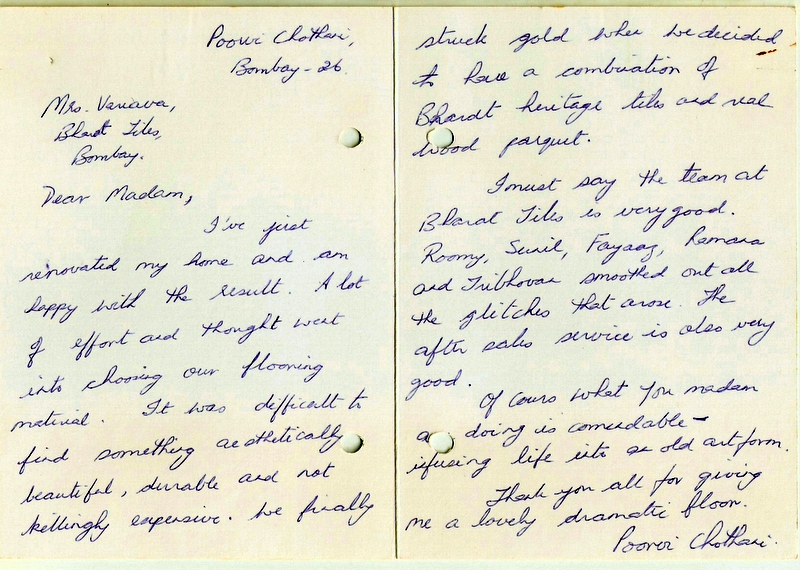 Poorvi Chothani,
Bombay - 26.
Mrs. Variava,
Bharat Tiles,
Bombay.
Dear Madam,
I've just
renovated my home and am
happy with the result. A lot
of effort and thought went
into choosing our flooring
material. It was difficult to
find something aesthetically
beautiful, durable and not
killingly expensive. We finally
struck gold when we decided
to have a combination of
Bharat heritage tiles and real
wood parquet.
I must say the team at
Bharat Tiles is very good.
Roomy, Sunil, Fayaaz, Ramana
and Tribhovan smoothed out all
the glitches that arose. The
after sales service is also very
good.
Of cours what you madam
doing is comendable -
infusing life into an old art form.
Thank you all for giving
me a lovely dramatic floor.
Poorvi Chothani.